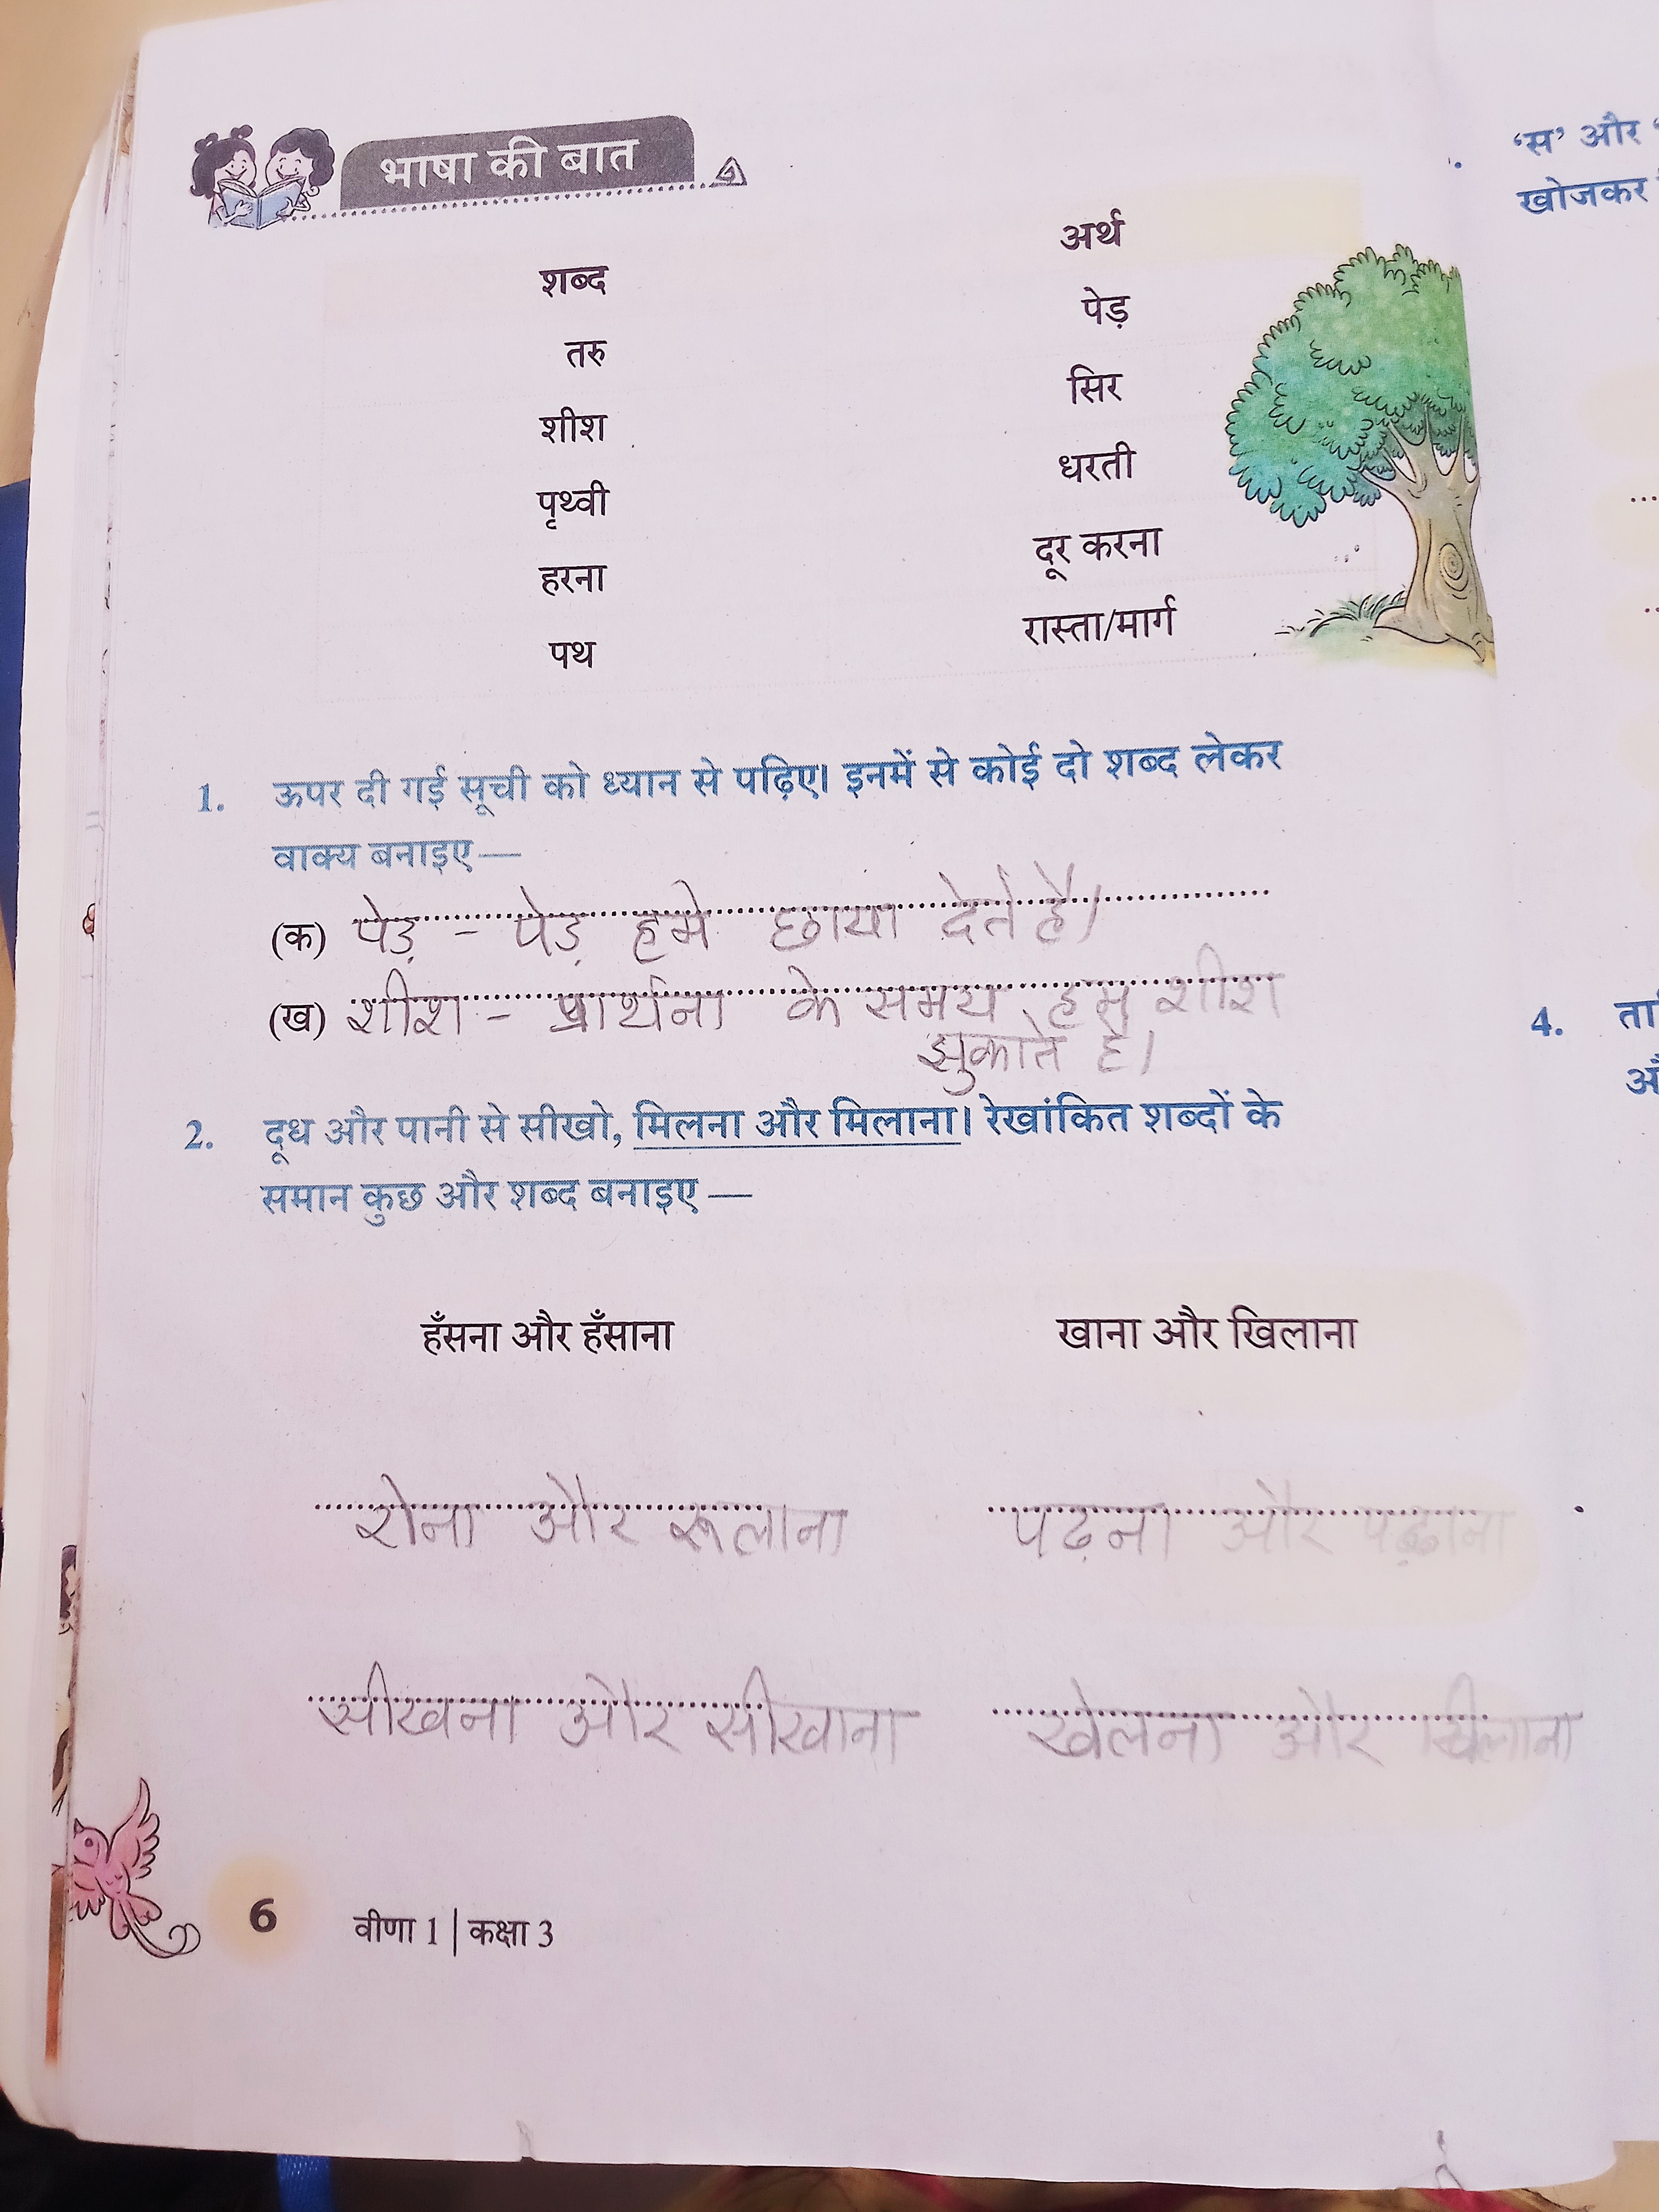 भाषा की बात
शब्द अर्थ
तरु पेड़
शीश सिर
पृथ्वी धरती
हरना दूर करना
पथ रास्ता/मार्ग
1. ऊपर दी गई सूची को ध्यान से पढ़िए। इनमें से कोई दो शब्द लेकर
वाक्य बनाइए—
(क) पेड़ - पेड़ हमे छाया देते है।
(ख) शीश - प्रार्थना के समय हम शीश
झुकाते है।
2. दूध और पानी से सीखो, मिलना और मिलाना। रेखांकित शब्दों के
समान कुछ और शब्द बनाइए —
हँसना और हँसाना खाना और खिलाना
रोना और रूलाना पढ़ना और पढ़ाना
सीखना और सीखाना खेलना और
6 वीणा 1 | कक्षा 3
'स' और
खोजकर
4.